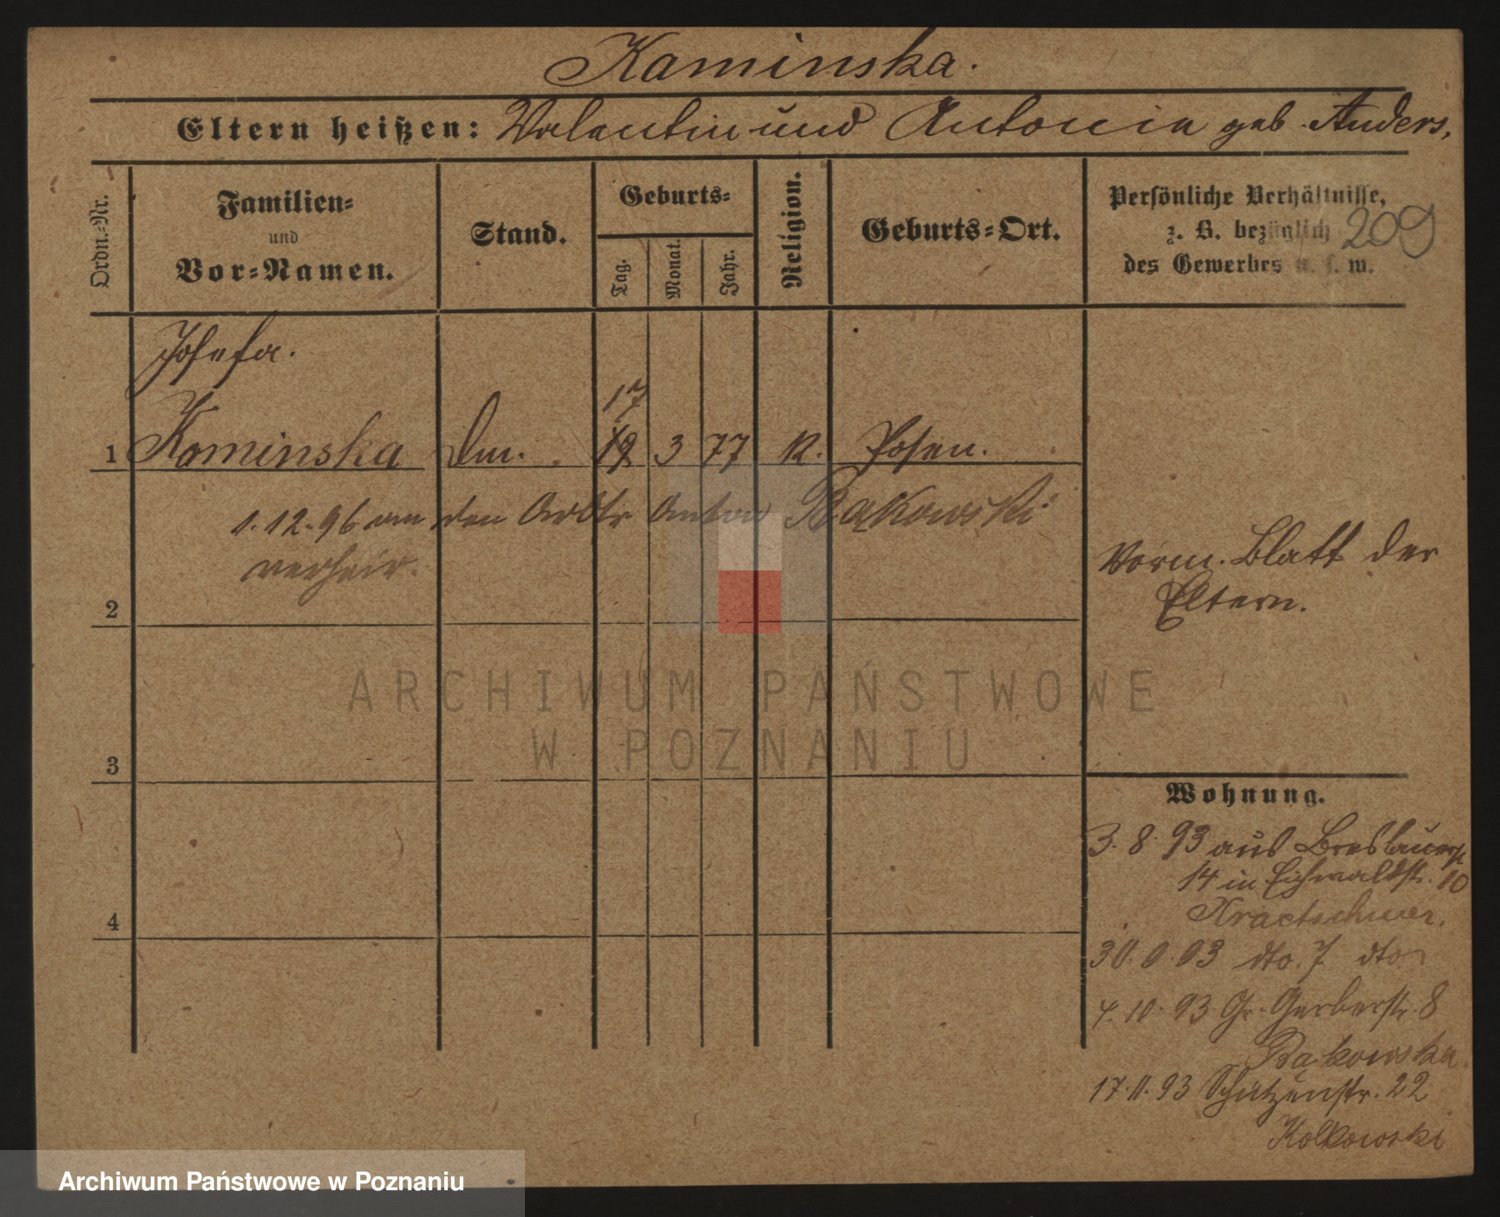 Kaminska.
Eltern heißen: Valentin und Antonie geb. Anders,
Ordn.-Nr.
Familien-
und
Vor-Namen.
Stand.
Geburts-
Tag.
Monat.
Jahr.
Religion.
Geburts-Ort.
Persönliche Verhältnisse,
z. B. bezüglich
des Gewerbes u. s. w.
209
Josefa.
17
1 Kaminska Dm. 18 3 77 K. Posen.
1.12.96 an den Arbtr Anton Bąkowski
verheir.
Vorm. Blatt der
Eltern.
2
3
4
Wohnung.
3.8.93 aus Breslauerstr
14 in Eichwaldstr. 10
Kractschmer.
30.9.93 dto. 7 dto
4.10.93 Gr. Gerberstr. 8
Bąkowska
17.11.93 Schützenstr. 22
Kolkowski
ARCHIWUM PAŃSTWOWE
W POZNANIU
Archiwum Państwowe w Poznaniu